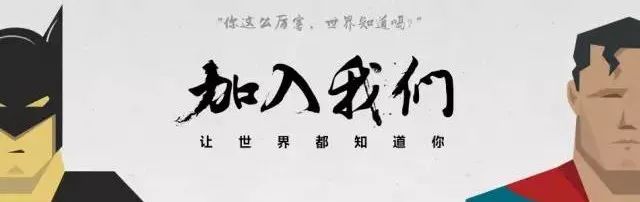 "你这么厉害，世界知道吗?"
加入我们
让世界都知道你